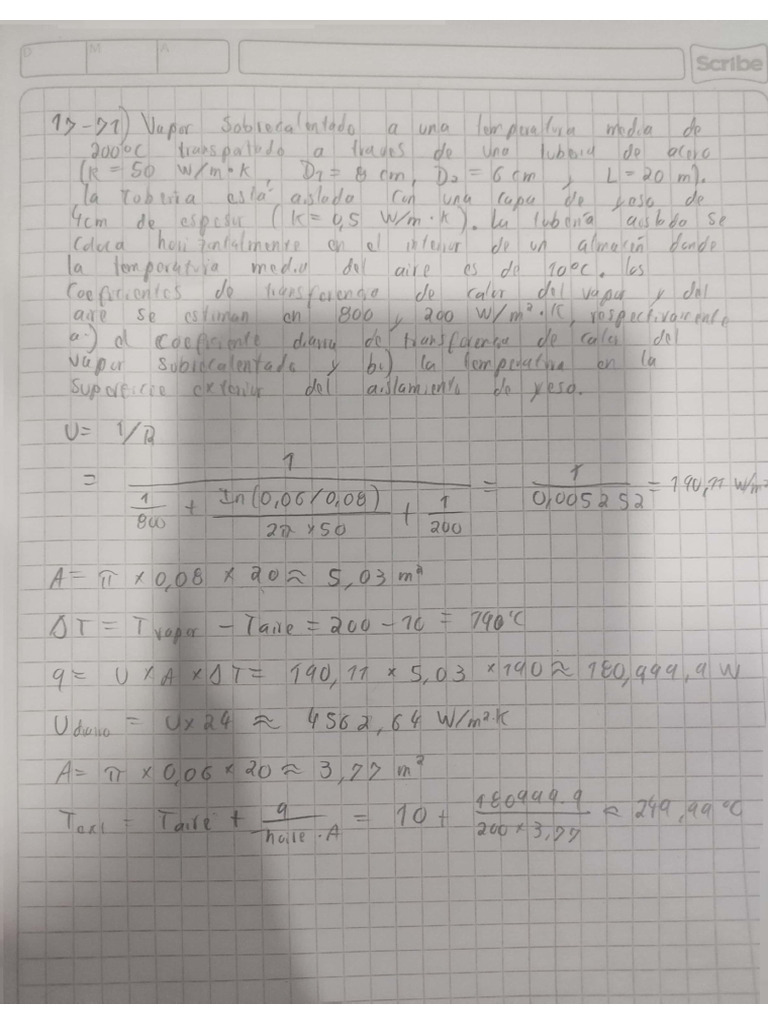 D M A
Scribe
17-71) Vapor Sobrecalentado a una temperatura media de
200°C transportado a traves de una tuberia de acero
(K = 50 W/m·K, D1 = 8 cm, D2 = 6 cm, y L = 20 m).
la toberia está aislada con una capa de yeso de
4cm de espesor (K = 0,5 W/m·K). La tubería aislada se
Coloca horizontalmente en el interior de un almacén donde
la temperatura media del aire es de 10°C. los
Coeficientes de transferencia de calor del vapor y del
aire se estiman en 800 y 200 W/m²·K, respectivamente
a.) el coeficiente diario de transferencia de calor del
vapor sobrecalentado y b.) la temperatura en la
superficie exterior del aislamiento de yeso.
U = 1/R
= 1 / (1/800 + In(0,06/0,08)/2π×50 + 1/200) = 1/0,005252 = 190,11 W/m²
A = π × 0,08 × 20 ≈ 5,03 m²
ΔT = Tvapor - Taire = 200 - 10 = 190°C
q = U × A × ΔT = 190,11 × 5,03 × 190 ≈ 180,999,9 W
Udiario = U×24 ≈ 4562,64 W/m²·K
A = π × 0,06 × 20 ≈ 3,77 m²
Text = Taire + q/haire·A = 10 + 180999.9/200×3,77 ≈ 249,99°C